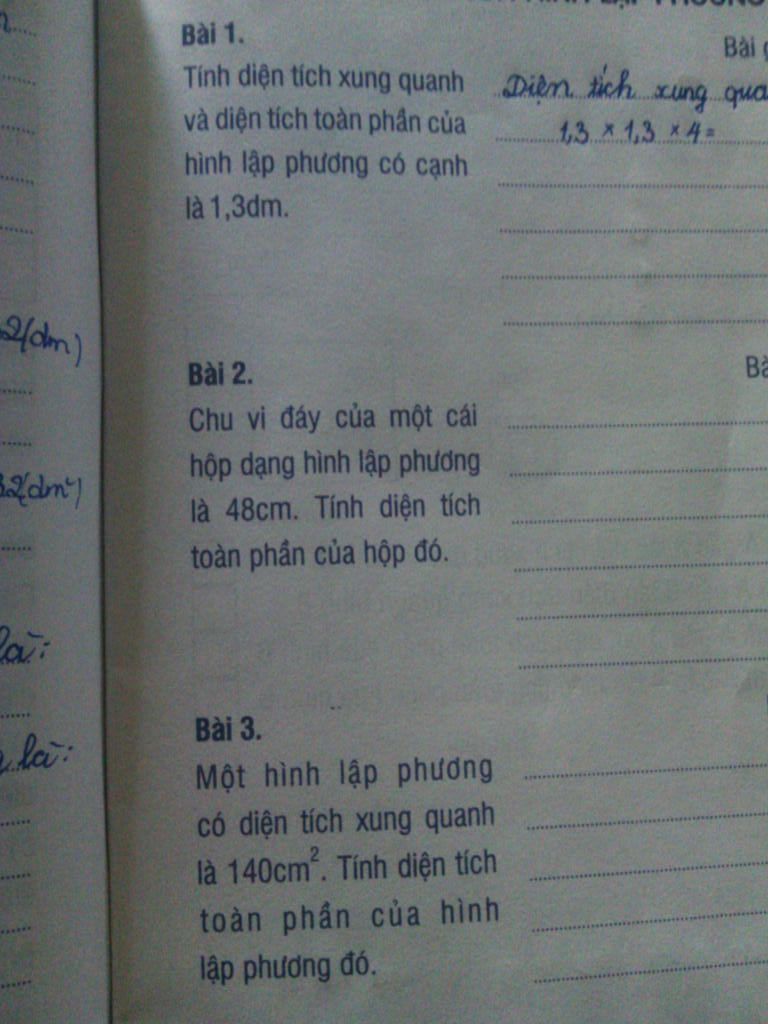 Bài 1.
Tính diện tích xung quanh
và diện tích toàn phần của
hình lập phương có cạnh
là 1,3dm.
Bài
Diện tích xung qua
1,3 × 1,3 × 4 =
2(dm)
2(dm²)
là:
là:
Bài 2.
Chu vi đáy của một cái
hộp dạng hình lập phương
là 48cm. Tính diện tích
toàn phần của hộp đó.
Bài 3.
Một hình lập phương
có diện tích xung quanh
là 140cm². Tính diện tích
toàn phần của hình
lập phương đó.